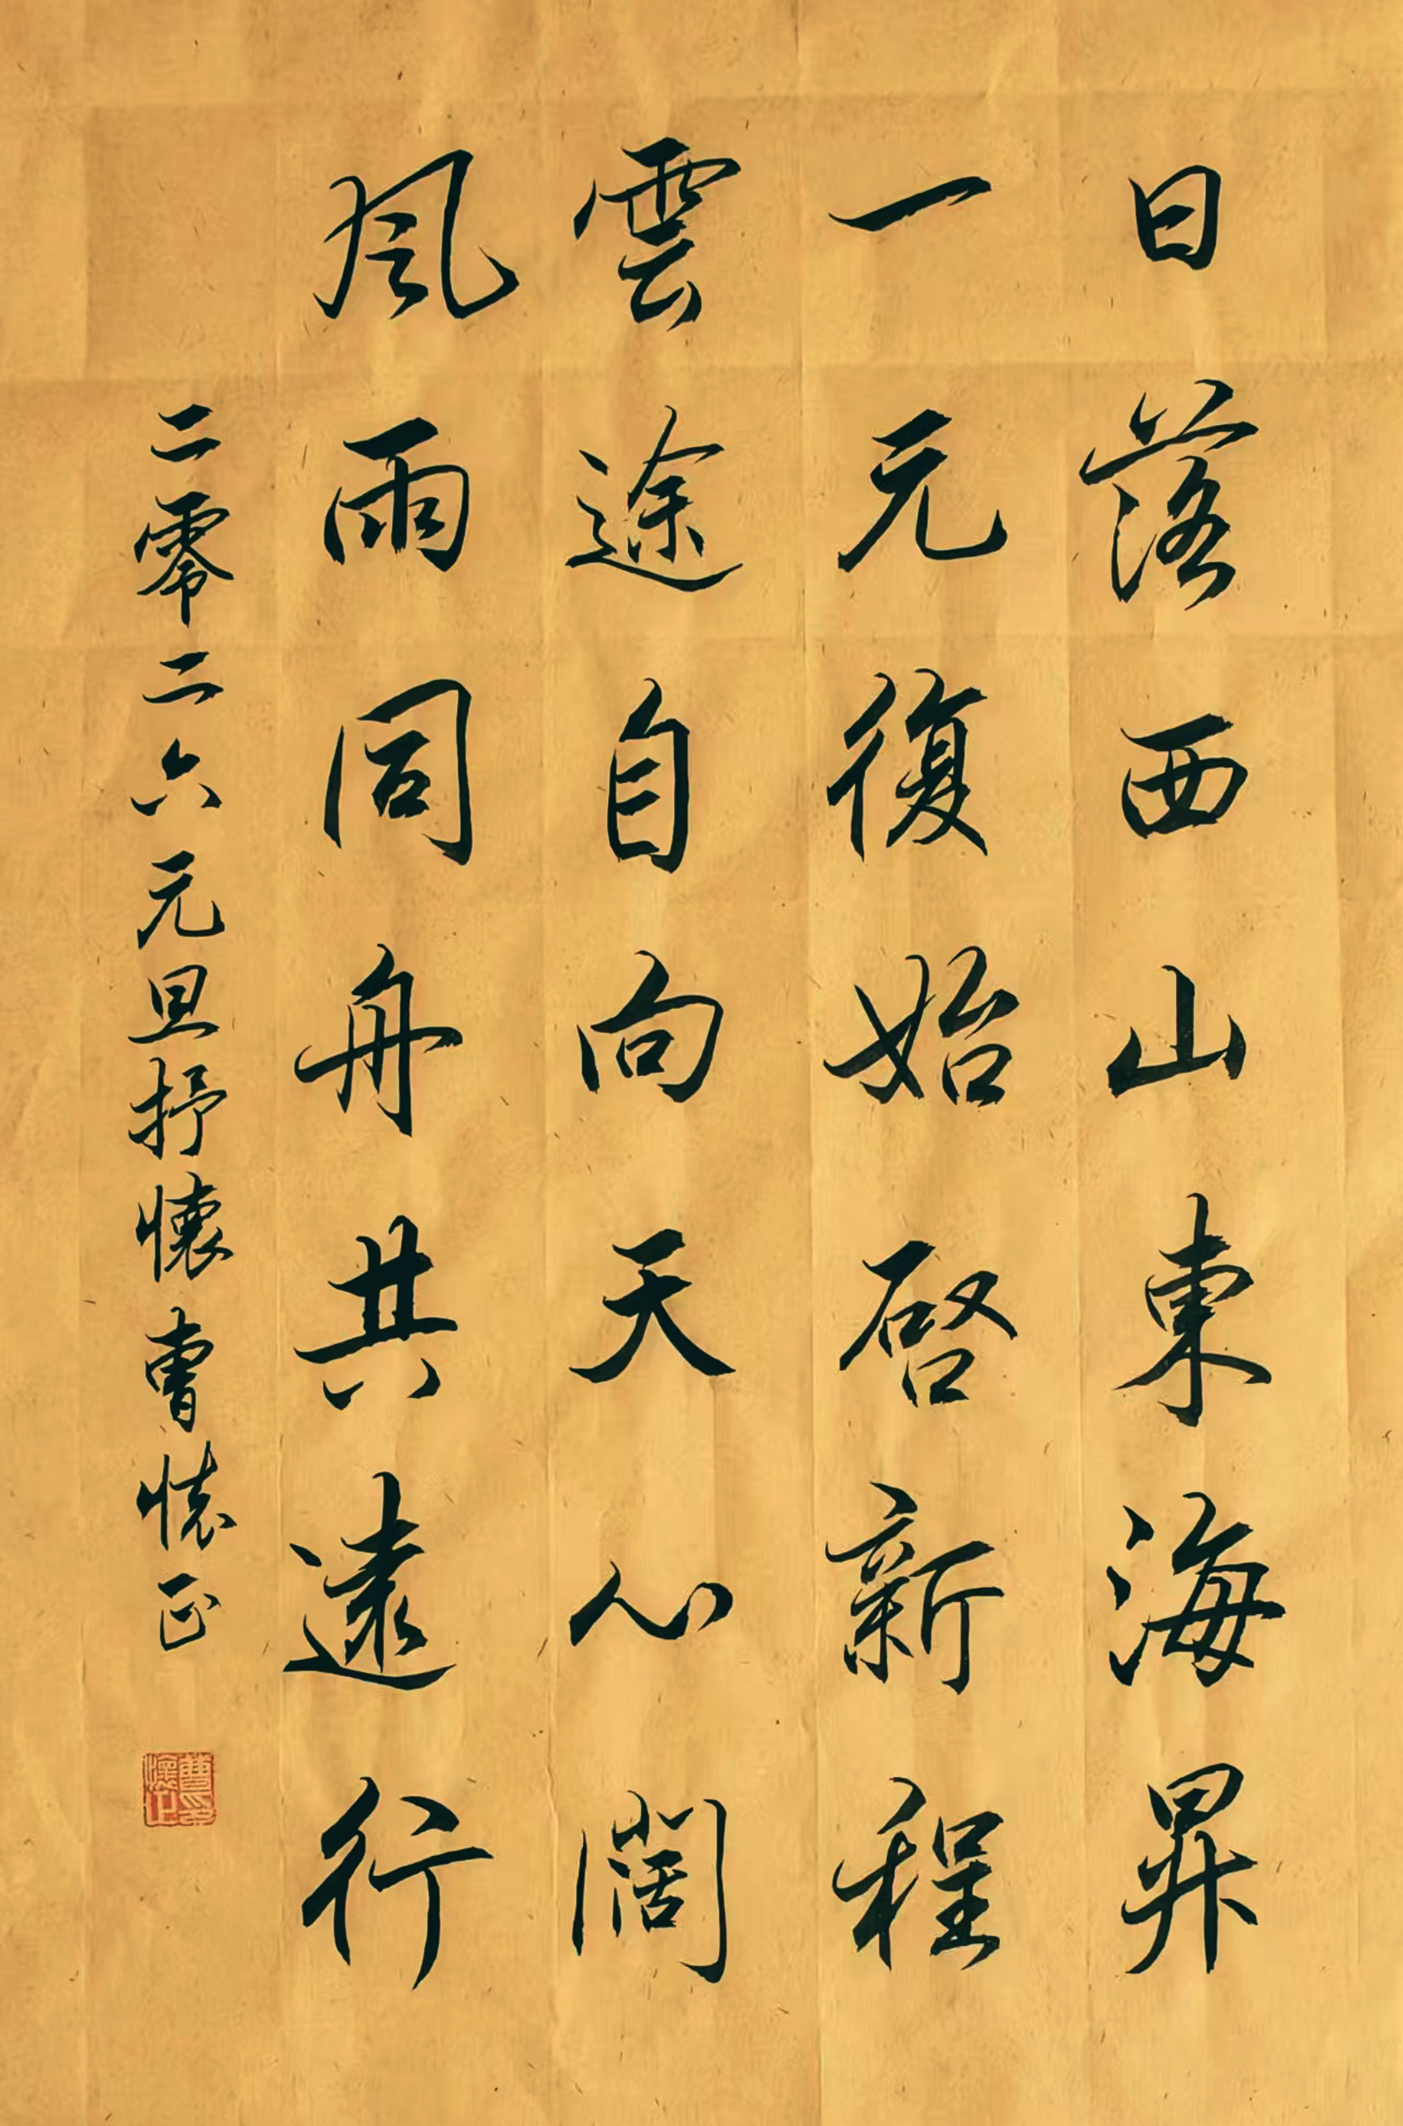 日落西山東海昇
一元復始啓新程
雲途自向天心闊
風雨同舟共遠行
二零二六元旦抒懷曹懷正
曹印懷正